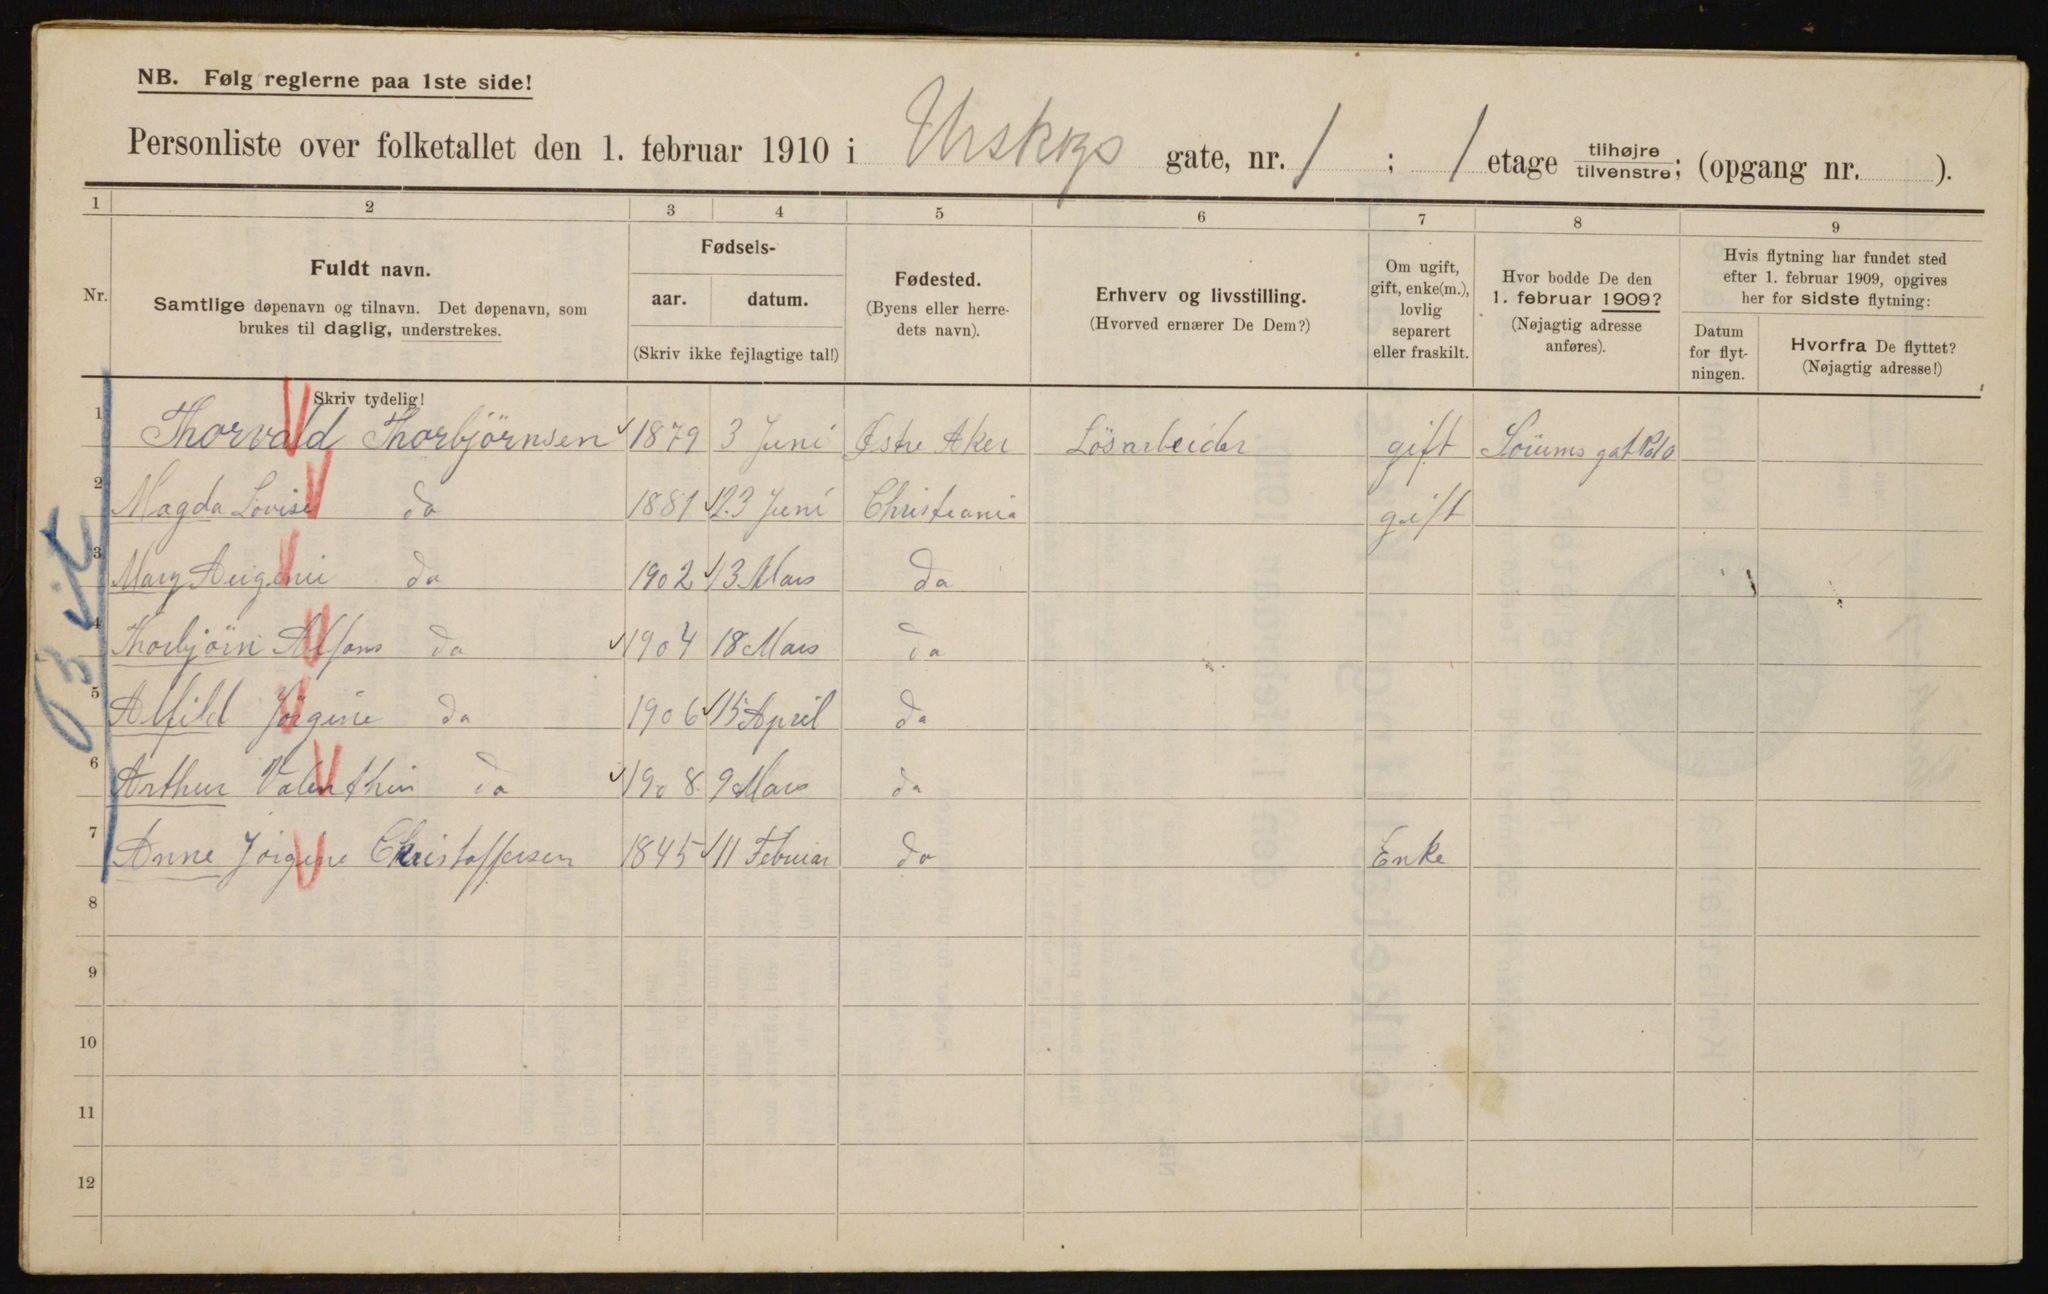 NB. Følg reglerne paa 1ste side!
Personliste over folketallet den 1. februar 1910 i Urskogs gate, nr. 1 ; 1 etage tilhøjre tilvenstre; (opgang nr. ).
1 2 3 4 5 6 7 8 9
Nr.
Fuldt navn.
Samtlige døpenavn og tilnavn. Det døpenavn, som
brukes til daglig, understrekes.
Fødsels-
aar. datum.
(Skriv ikke fejlagtige tal!)
Fødested.
(Byens eller herre-
dets navn).
Erhverv og livsstilling.
(Hvorved ernærer De Dem?)
Om ugift,
gift, enke(m.),
lovlig
separert
eller fraskilt.
Hvor bodde De den
1. februar 1909?
(Nøjagtig adresse
anføres).
Hvis flytning har fundet sted
efter 1. februar 1909, opgives
her for sidste flytning:
Datum
for flyt-
ningen.
Hvorfra De flyttet?
(Nøjagtig adresse!)
Skriv tydelig!
1 Thorvald Thorbjörnsen 1879 3 Juni Østre Aker Lösarbeider gift
2 Magda Lovise do 1881 23 Juni Christiania gift
3 Mary do 1902 13 Mars do
4 Thorbjörn Alfons do 1904 18 Mars do
5 Alfild Jörgine do 1906 15 April do
6 Arthur Valenthin do 1908 9 Mars do
7 Anne Jörgine Christoffersen 1845 11 Februar do Enke
8
9
10
11
12